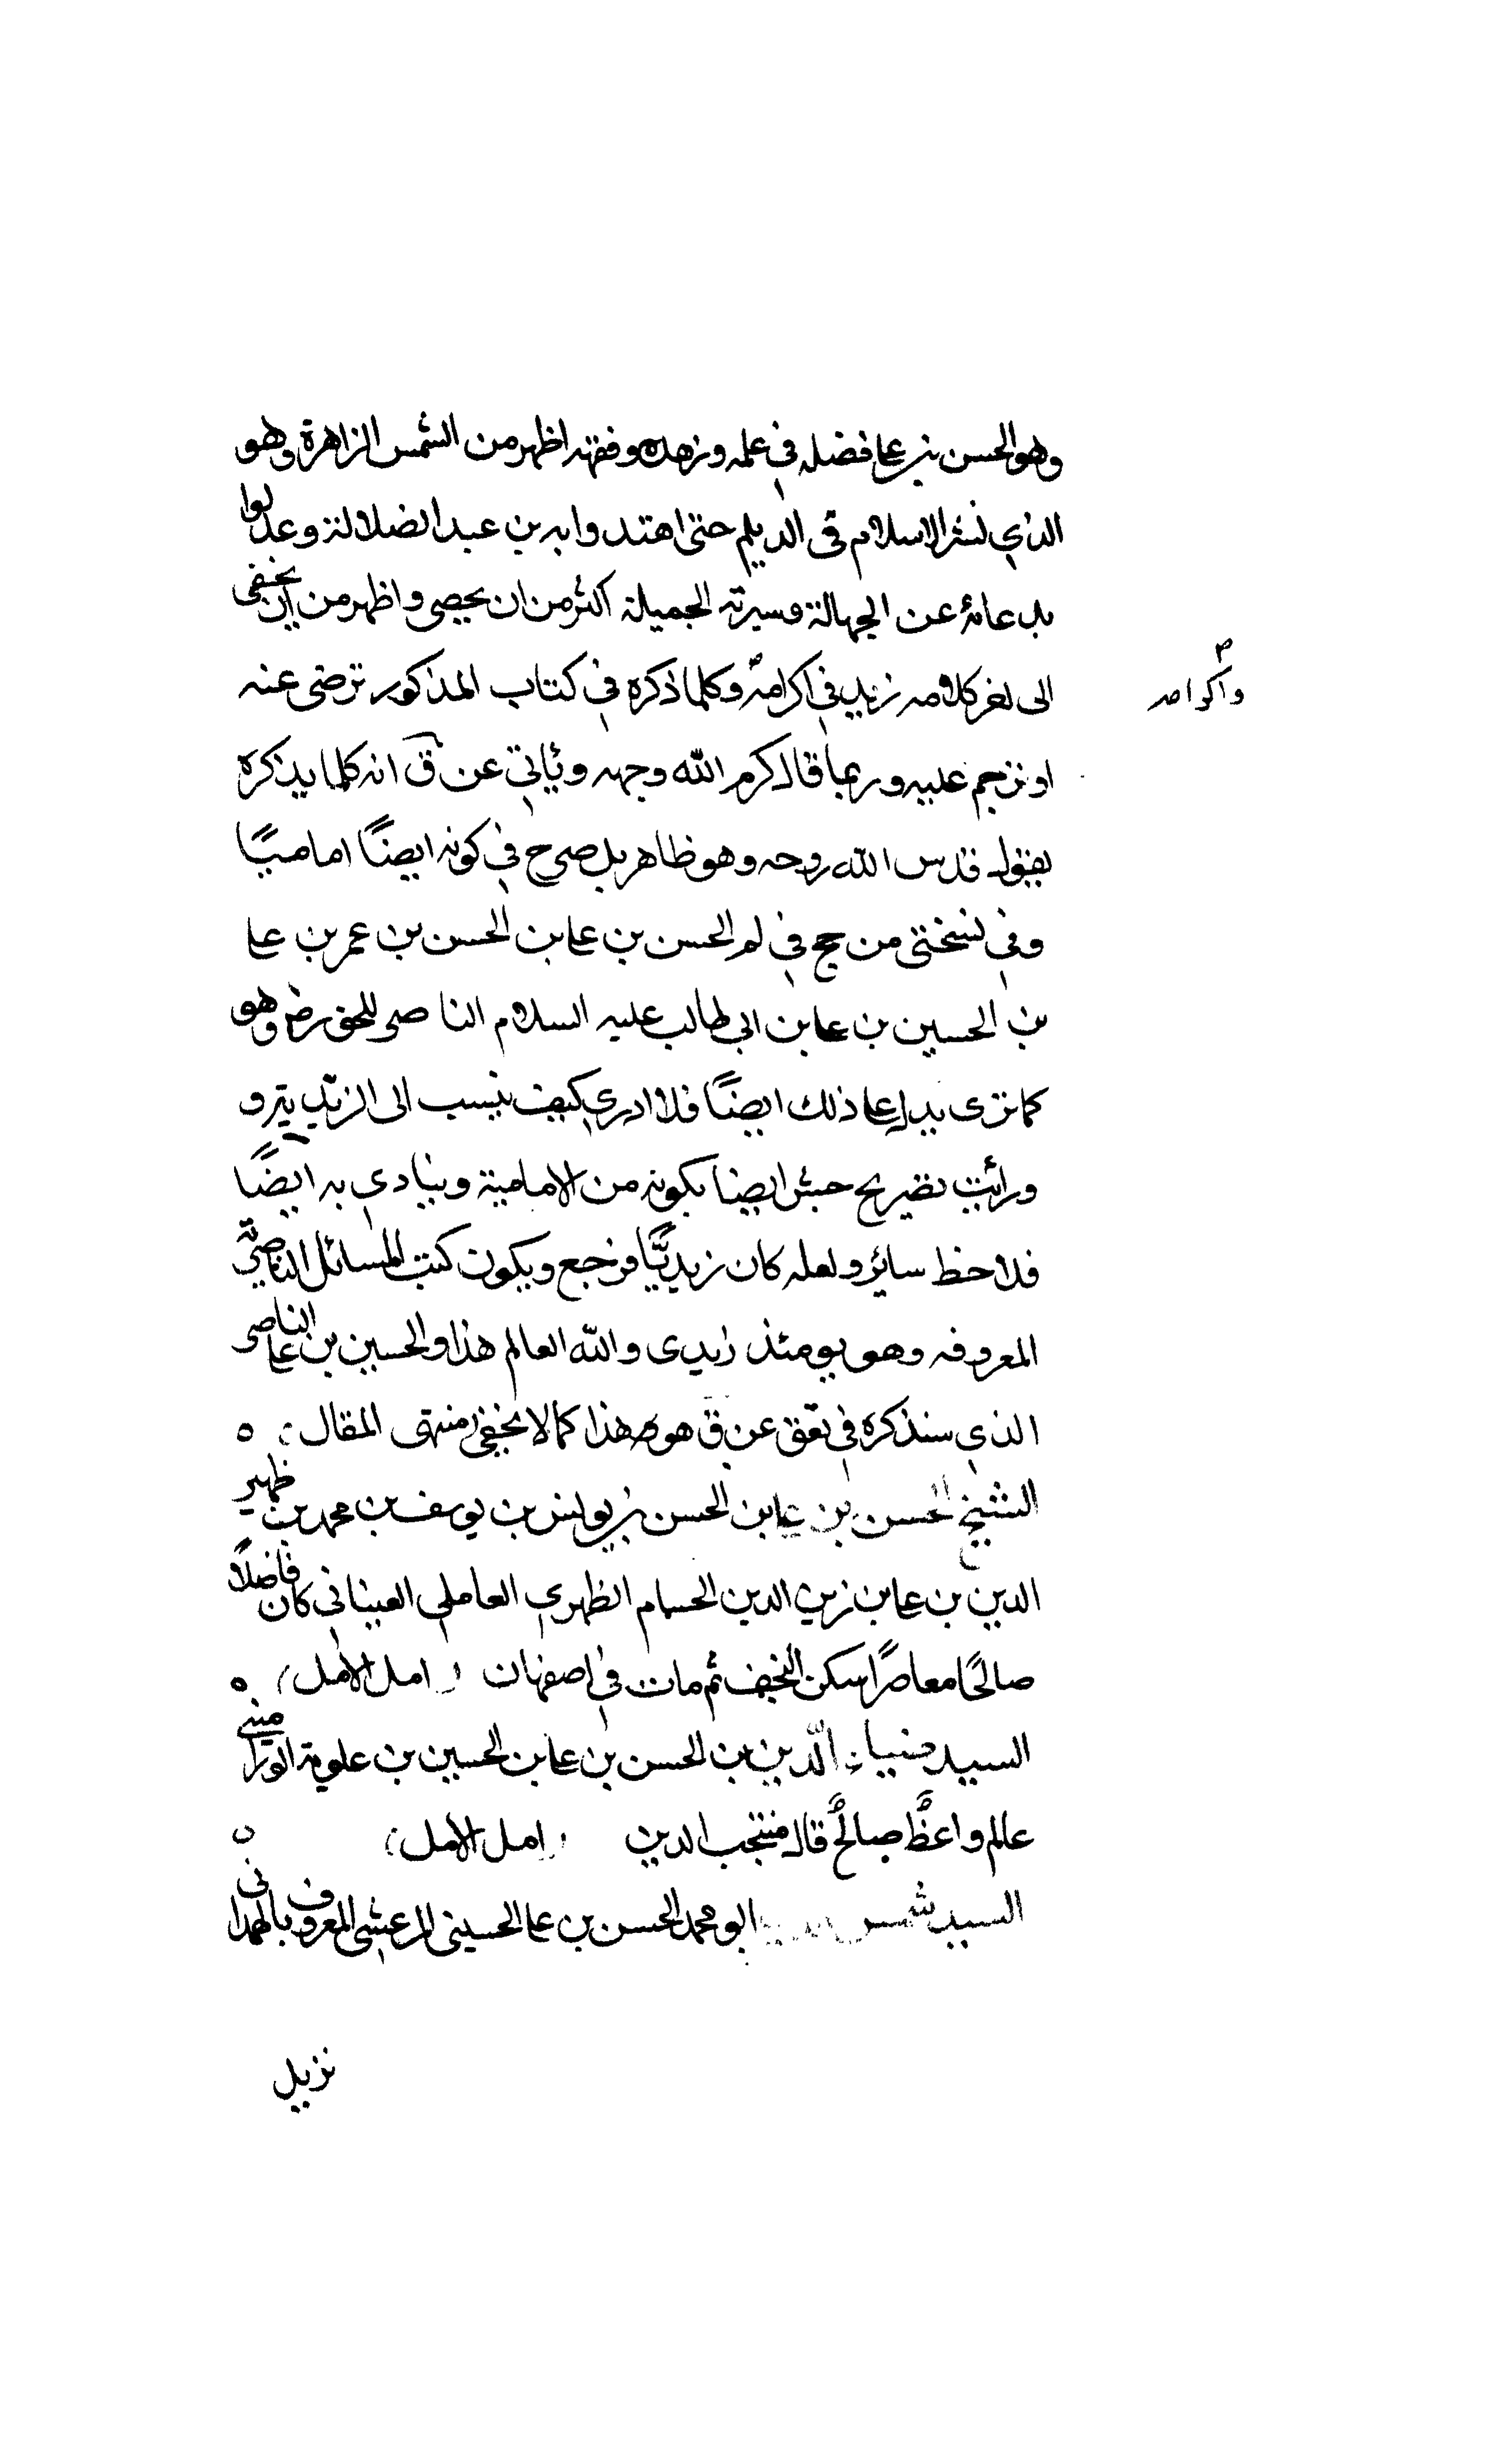 وهو الحسن بن علي فضله في علمه وزهده وفقهه اظهر من الشمس الزاهرة وهو
الذي نشر الاسلام في الديلم حتى اهتدوا به بعد الضلالة وعدلوا
بدعائه عن الجهالة وسيرته الجميلة اكثر من ان يحصى واظهر من ان يخفى
الى اخر كلامه زيد في اكرامه وكلما ذكره في كتاب المذكور ترضى عنه
واكرامه
او ترحم عليه وربما قال كرم الله وجهه ويأتي عن ق انه كلما يذكره
يقول قدس الله روحه وهو ظاهر بل صريح في كونه ايضًا اماميًا
وفي نسختي من جج في لم الحسن بن علي بن الحسن بن عمر بن علي
بن الحسين بن علي بن ابي طالب عليه السلام الناصر للحق رض وهو
كما ترى يدل على ذلك ايضًا فلا ادري كيف ينسب الى الزيدية و
ورأيت تصريح ايضا بكونه من الامامية وينادي به ايضًا
فلاحظ ولعله كان زيديًّا فرجع ويكون كتب المسائل الناصرية
المعروفه وهو يومئذ زيدى والله العالم هذا والحسين بن علي الناصر
الذي سنذكره في تعق عن ق هو هذا كما لا يخفى (منتهى المقال) ٥
الشيخ الحسن بن علي بن الحسن بن يونس بن يوسف بن محمد بن ظهير
الدين بن علي بن زين الدين الحسام الظهيري العاملي العيناثي كان فاضلًا
صالحًا معاصرًا سكن النجف ثم مات في اصفهان (امل الامل) ٥
السيد ضياء الدين بن الحسن بن علي بن الحسين بن علوية
عالم واعظٌ صالحٌ قاله منتجب الدين (امل الامل) ٥
السيد شمس ابو محمد الحسن بن علي الحسيني المرعشي المعروف بالهمداني
نزيل